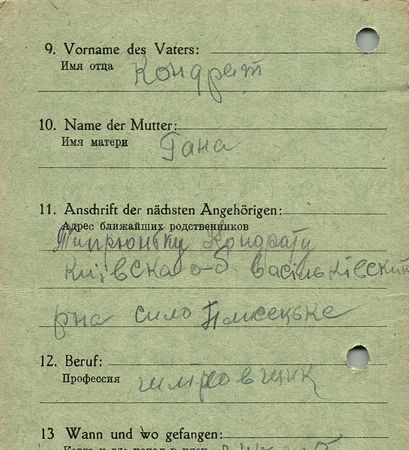 9. Vorname des Vaters:
Имя отца
Кондрат
10. Name der Mutter:
Имя матери
Гана
11. Anschrift der nächsten Angehörigen:
Адрес ближайших родственников
Кондрату
Київска о-б. Васільківский
рна сило
12. Beruf:
Профессия
13 Wann und wo gefangen: